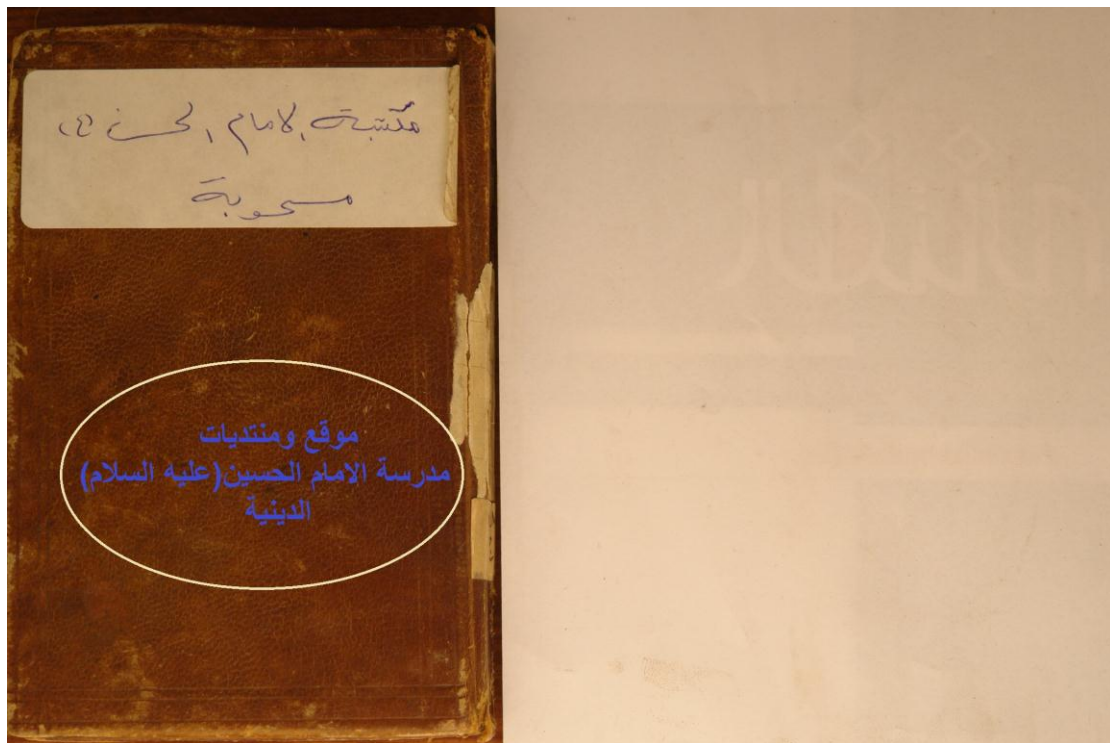 مكتبة الامام الحسن (ع)
مسحوبة
موقع ومنتديات
مدرسة الامام الحسين(عليه السلام)
الدينية